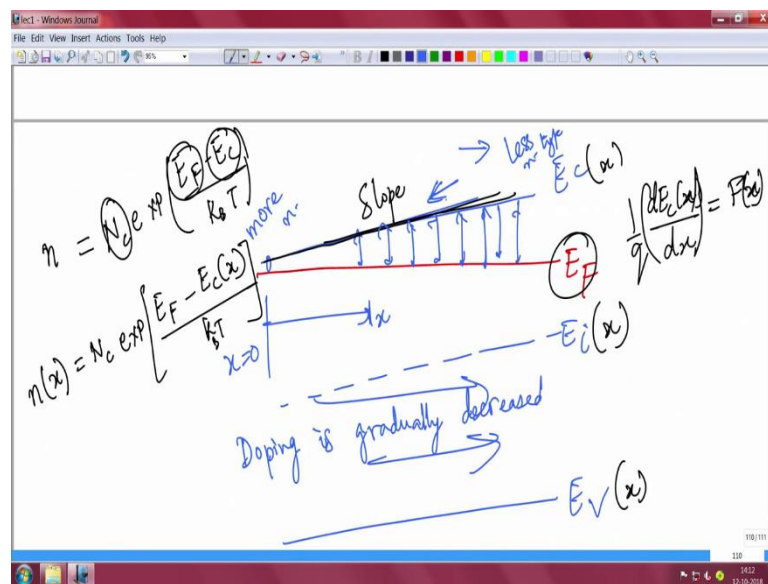 lec1 - Windows Journal
File Edit View Insert Actions Tools Help
95%
B I
n = Nc exp (EF - Ec / kBT)
n(x) = Nc exp [EF - Ec(x) / kBT]
more n-
Slope
Less n-type
Ec(x)
1/q (dEc(x)/dx) = F(x)
EF
x
x=0
Ei(x)
Doping is gradually decreased
Ev(x)
110/111
110
14:12
12-10-2018